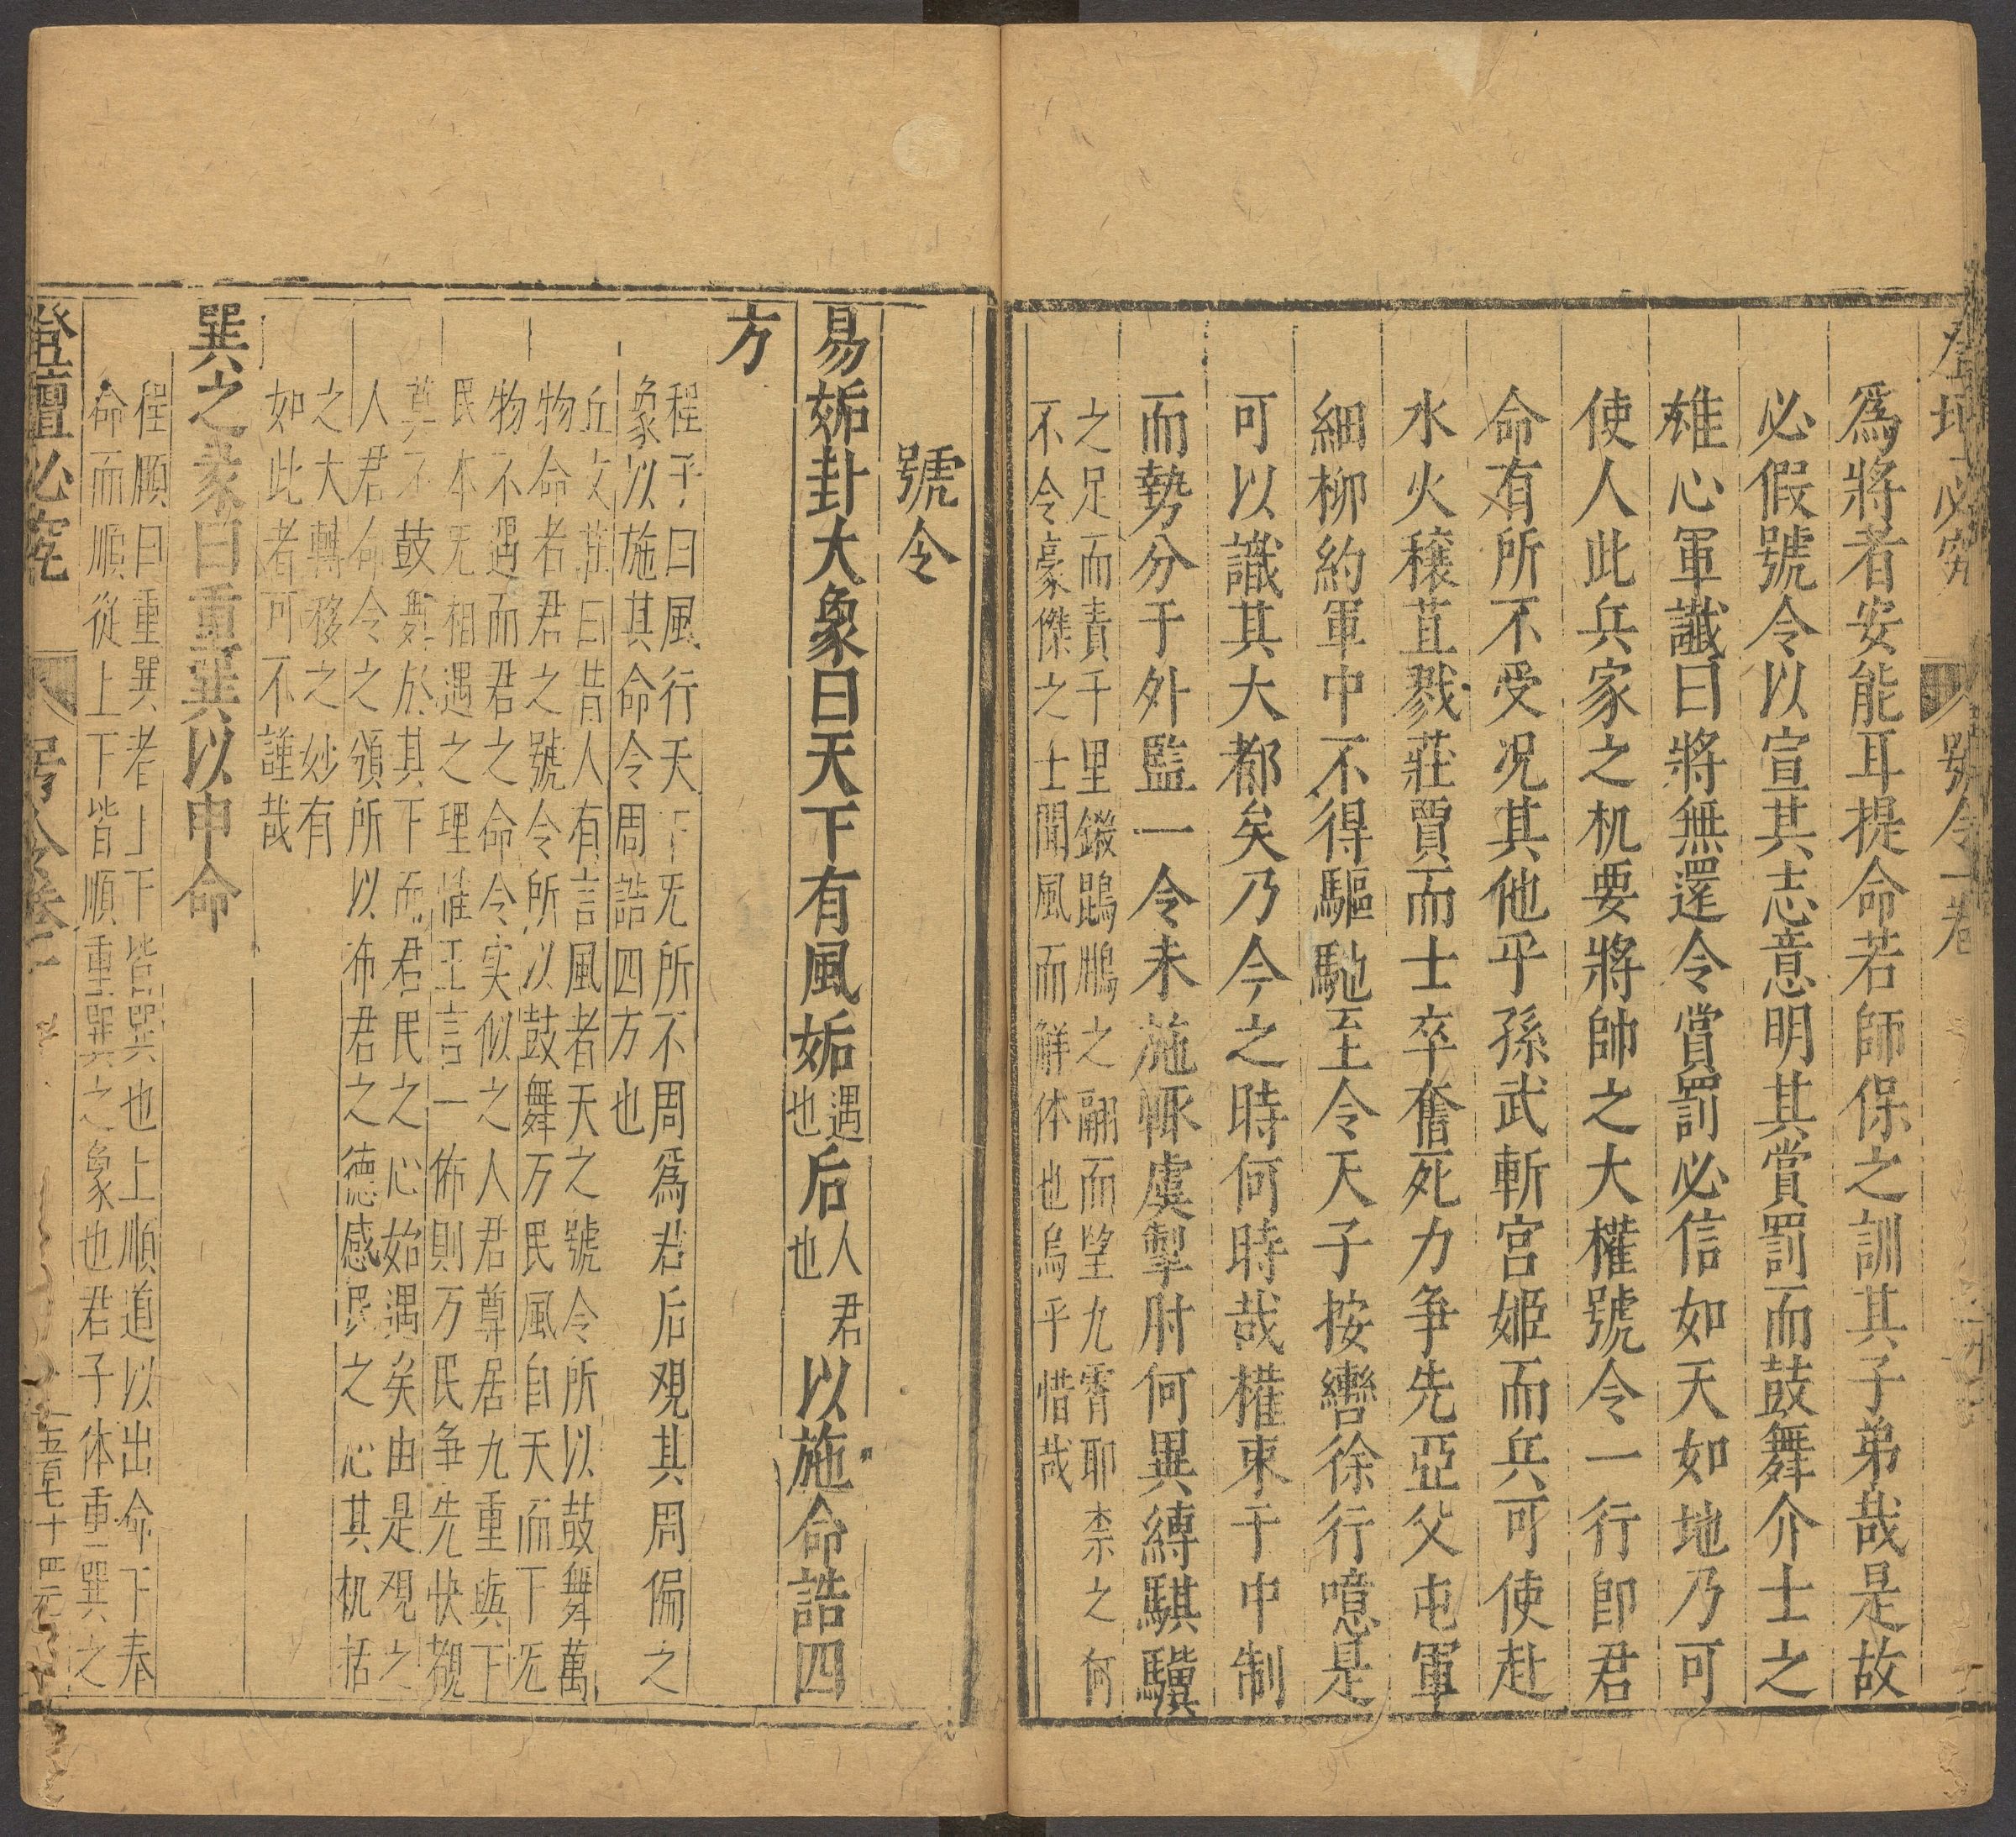 登壇必究 號令一卷
爲將者安能耳提命若師保之訓其子弟哉是故
必假號令以宣其志意明其賞罰而鼓舞介士之
雄心軍讖曰將無還令賞罰必信如天如地乃可
使人此兵家之机要將帥之大權號令一行即君
命有所不受况其他乎孫武斬宮姬而兵可使赴
水火穰苴戮莊賈而士卒奮死力争先亞父屯軍
細柳約軍中不得驅馳至令天子按轡徐行噫是
可以識其大都矣乃今之時何時哉權束于中制
而勢分于外監一令未施輒虞掣肘何異縛騏驥
之足而責千里鎩鵾鵬之翮而望九霄耶柰之何
不令豪傑之士聞風而觧体也烏乎惜哉
號令
易姤卦大象曰天下有風姤遇也后人君也以施命誥四
方
程子曰風行天下旡所不周爲君后观其周徧之
象以施其命令周誥四方也
丘文莊曰昔人有言風者天之號令所以鼓舞萬
物命者君之號令所以鼓舞万民風自天而下旡
物不遇而君之命令实似之人君尊居九重與下
民本旡相遇之理惟王言一佈則万民争先快覩
莫不鼓舞於其下而君民之心始遇矣由是观之
人君命令之頒所以布君之德感民之心其机括
之大轉移之妙有
如此者可不謹哉
巽之彖曰重巽以申命
程頤曰重巽者上下皆巽也上順道以出命下奉
命而順從上下皆順重巽之象也君子体重巽之
登壇必究 號令卷 五百七十四元